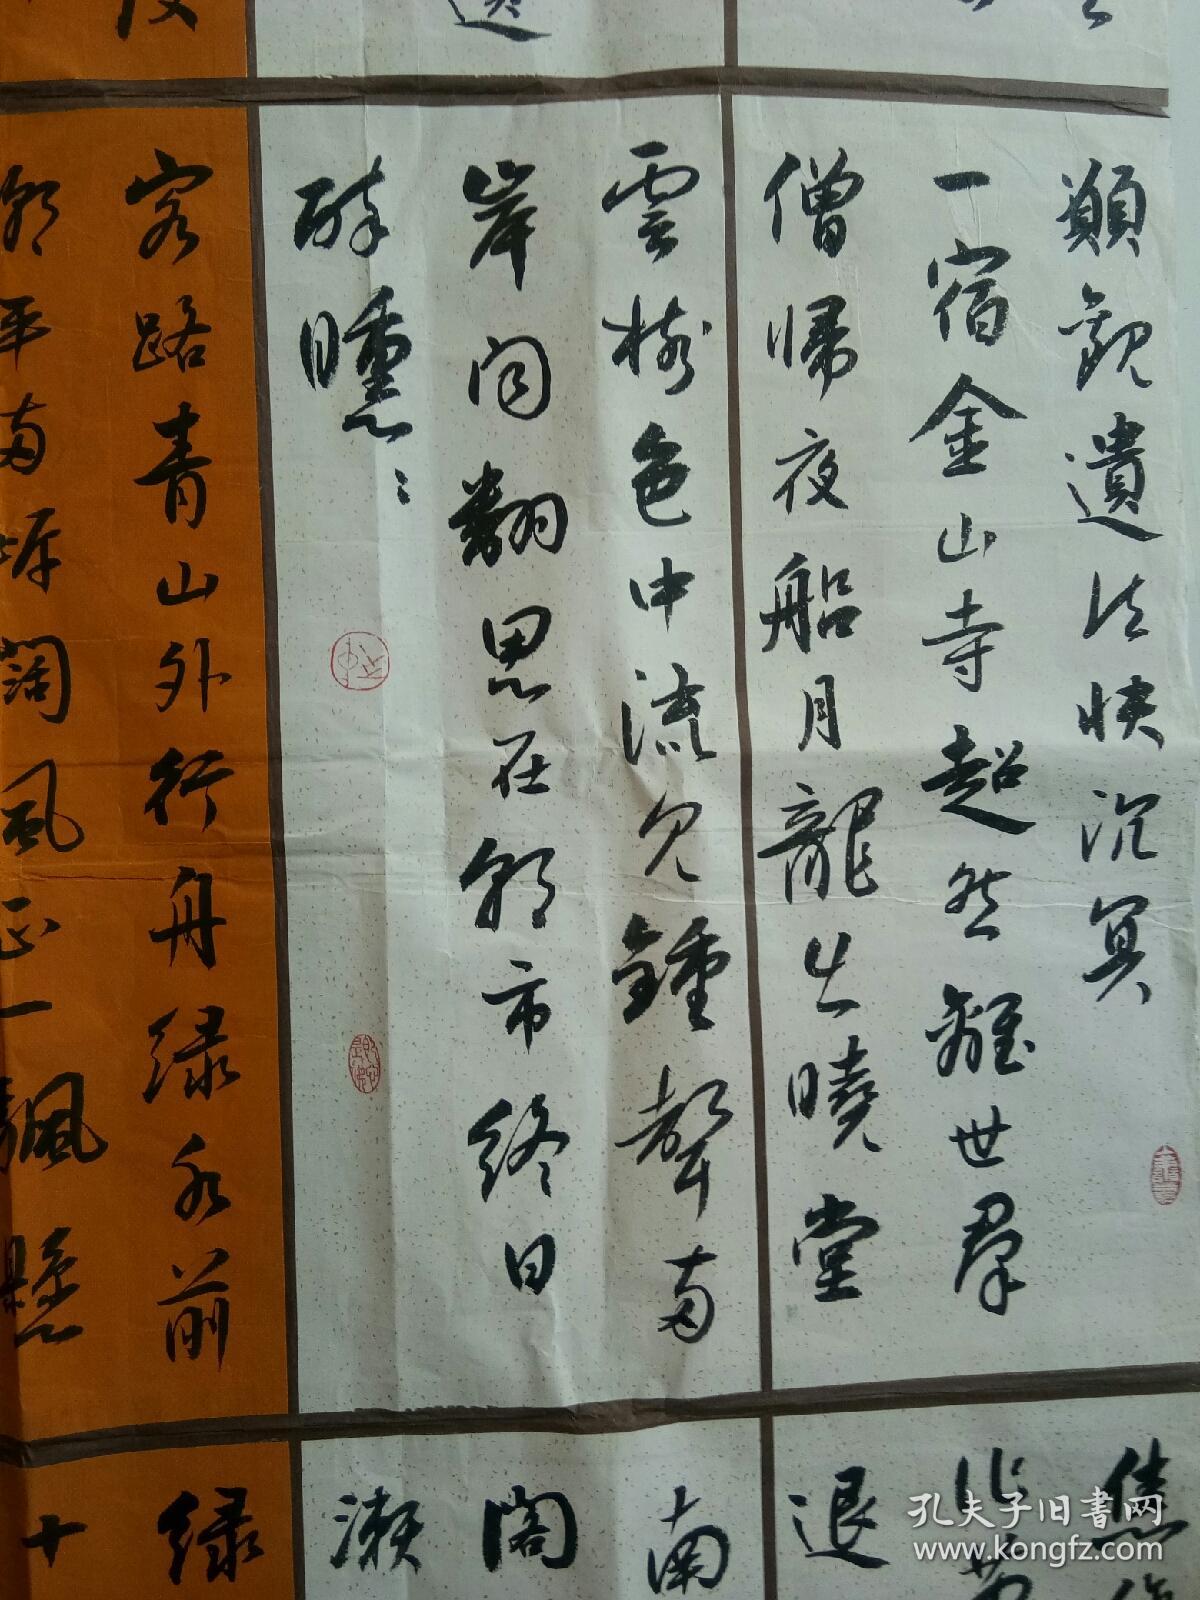 觀遺法快沉冥
一宿金山寺超然離世群
僧歸夜船月龍出曉堂
雲樹色中流見鐘聲兩
岸闻翻思在朝市終日
醉醺〻
客路青山外行舟绿水前
平兩岸闊風正一颿懸
退
南
阁
濑
绿
十
孔夫子旧书网
www.kongfz.com